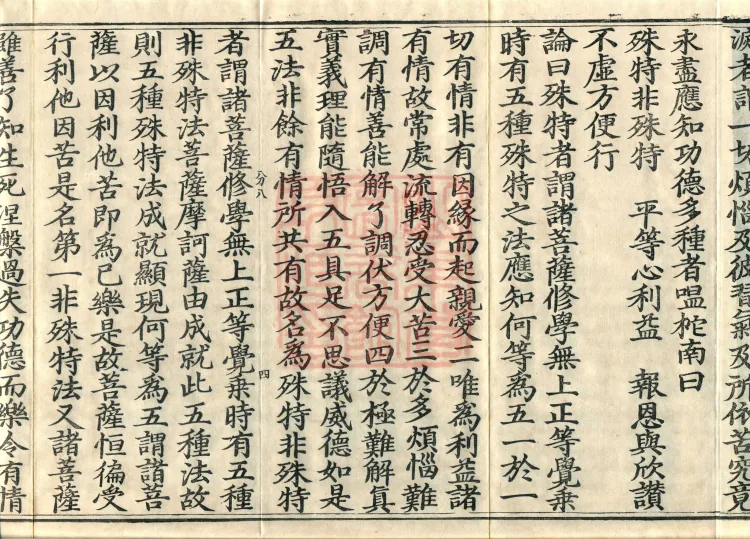 滅者謂一切煩惱及彼習氣及所依苦究竟
永盡應知功德多種者嗢柁南曰
殊特非殊特　平等心利益　報恩與欣讚
不虛方便行
論曰殊特者謂諸菩薩修學無上正等覺乗
時有五種殊特之法應知何等為五一於一
切有情非有因緣而起親愛二唯為利益諸
有情故常處流轉忍受大苦三於多煩惱難
調有情善能解了調伏方便四於極難解真
實義理能隨悟入五具足不思議威德如是
五法非餘有情所共有故名為殊特非殊特
四
者謂諸菩薩修學無上正等覺乗時有五種
非殊特法菩薩摩訶薩由成就此五種法故
則五種殊特法成就顯現何等為五謂諸菩
薩以因利他苦即為己樂是故菩薩恒徧受
行利他因苦是名第一非殊特法又諸菩薩
雖善了知生死涅槃過失功德而樂令有情